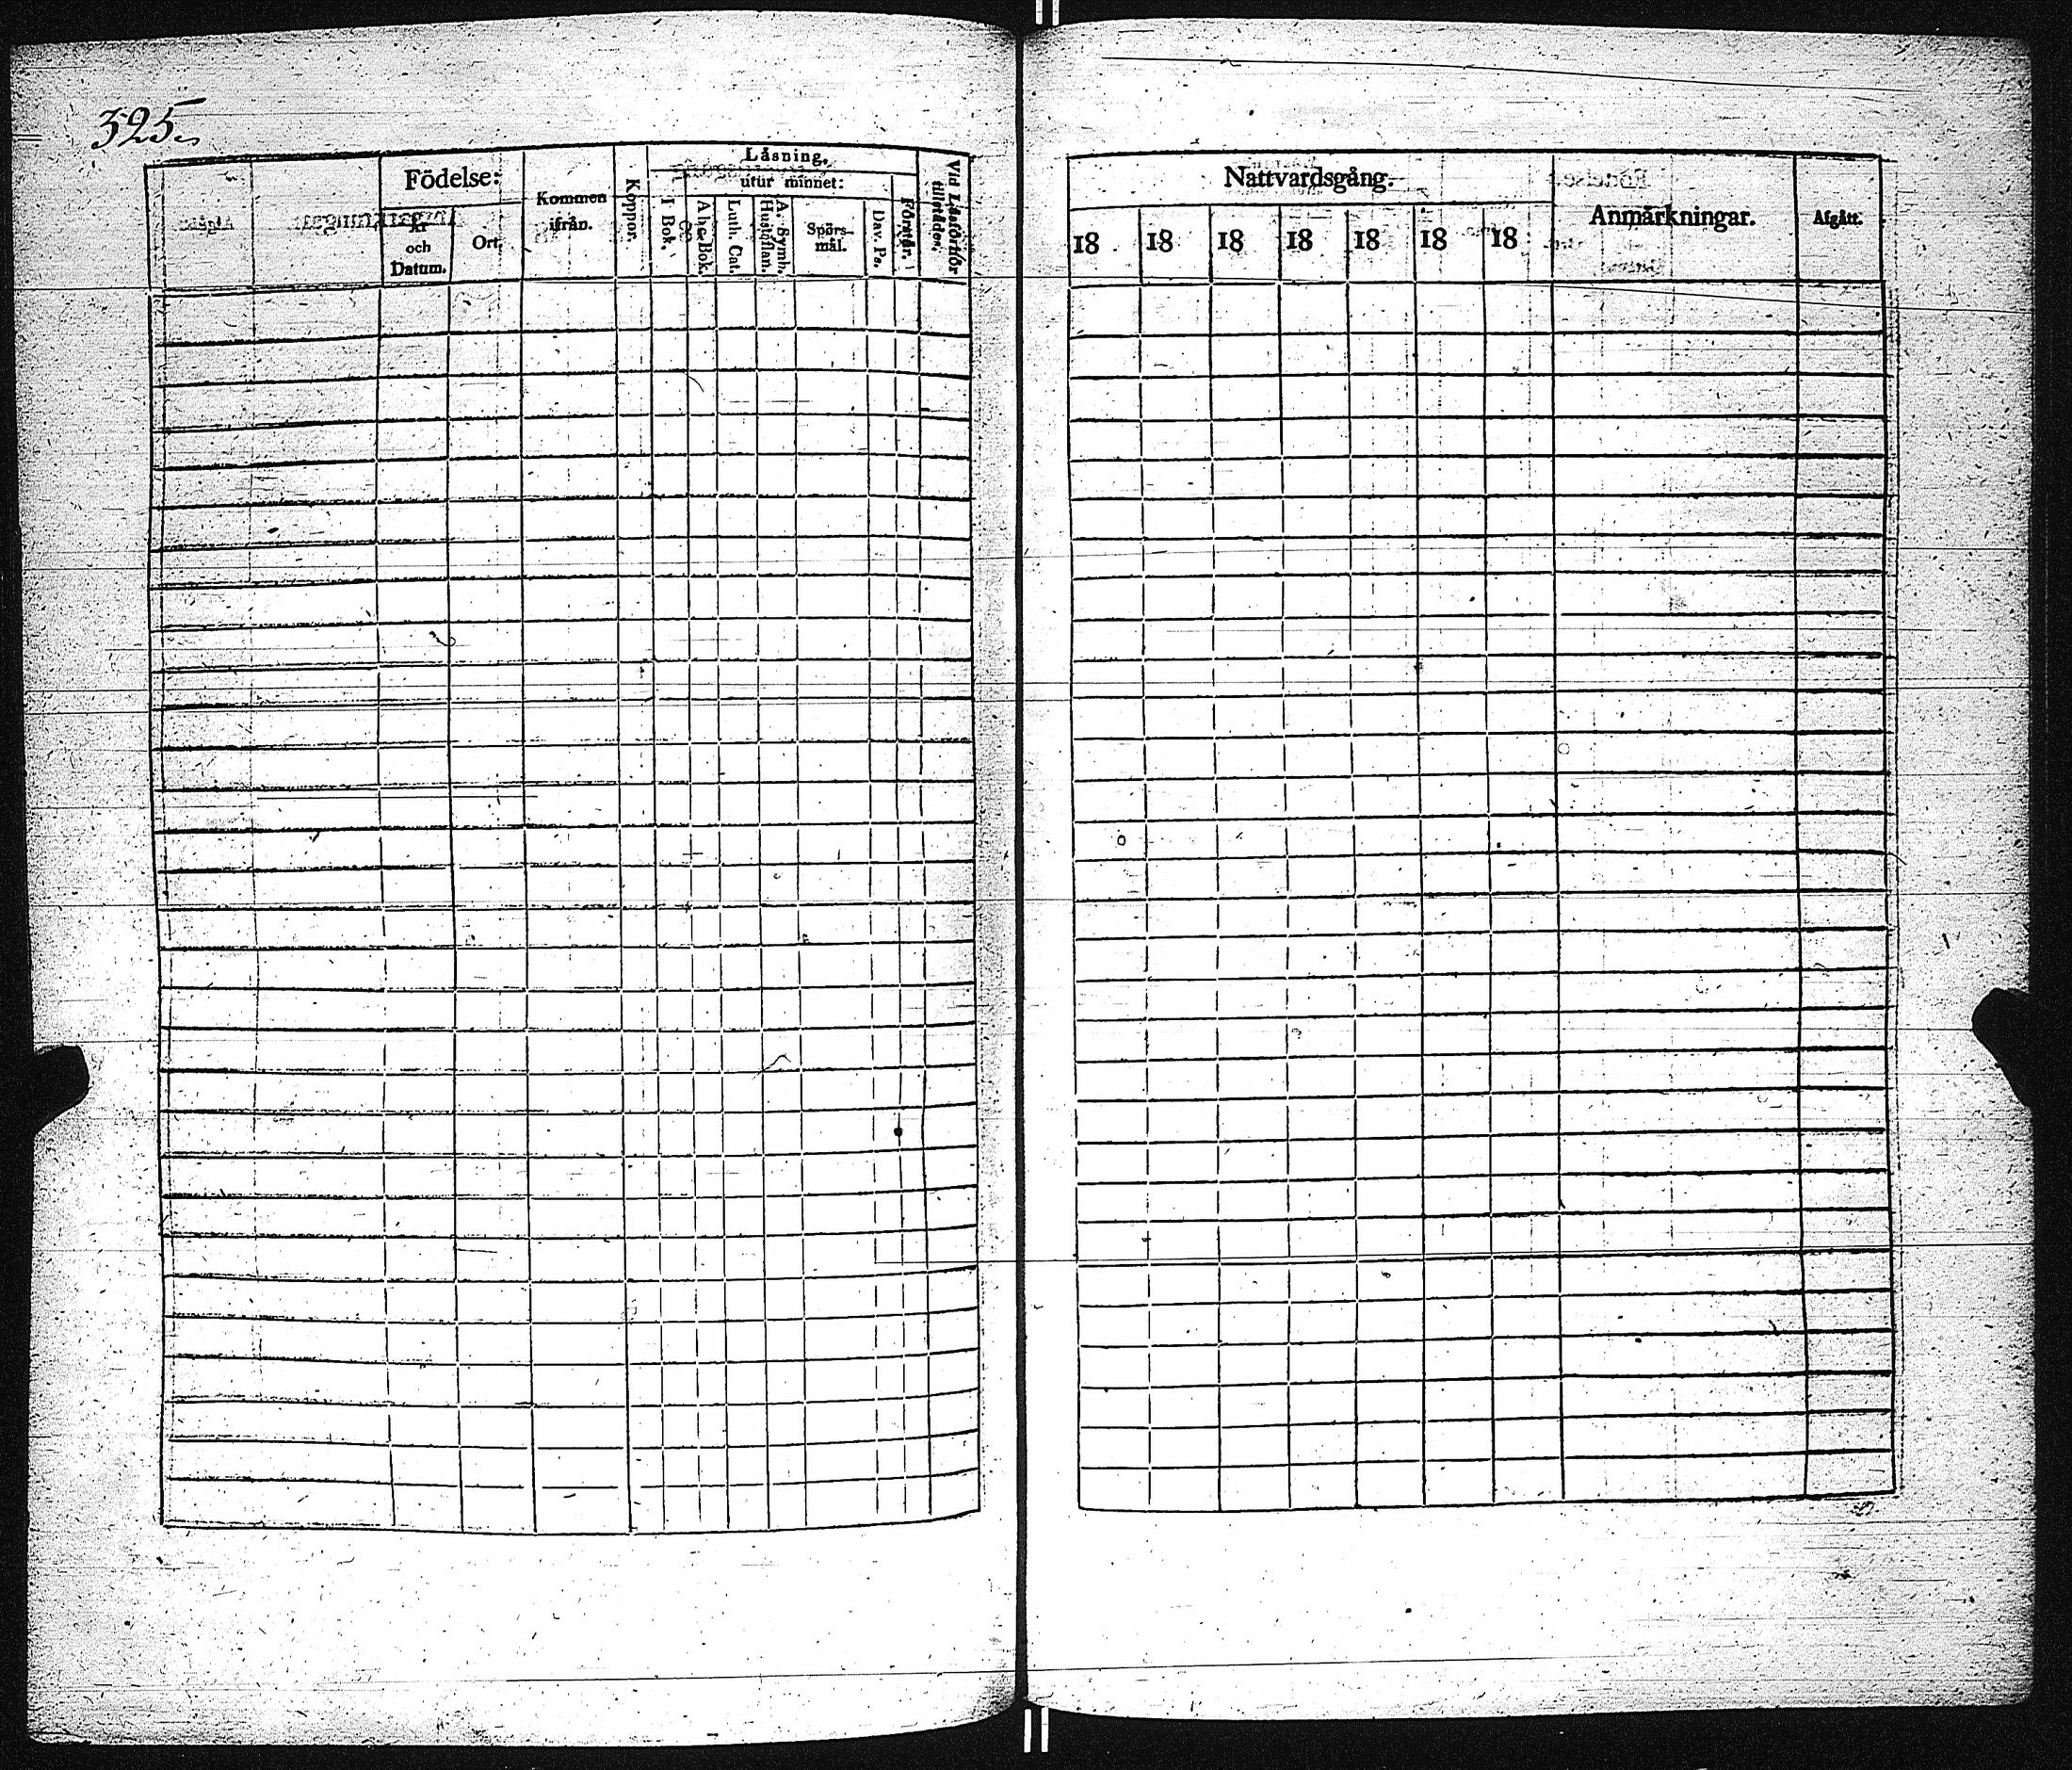 325.
Födelse:
År och Datum.
Ort.
Kommen ifrån.
Koppor.
Läsning.
I Bok.
utur minnet:
Abc-Bok.
Luth. Cat.
A. Symb. Hustaflan.
Spörs-mål.
Dav. Ps.
Förstår.
Vid Läsförhör tillstädes.
Nattvardsgång.
18
18
18
18
18
18
18
Anmärkningar.
Afgått.